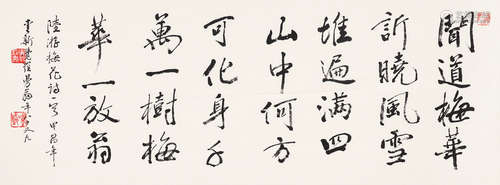 聞道梅華
訢曉風雪
堆遍滿四
山中何方
可化身千
萬一樹梅
華一放翁
陸游梅花詩一首甲